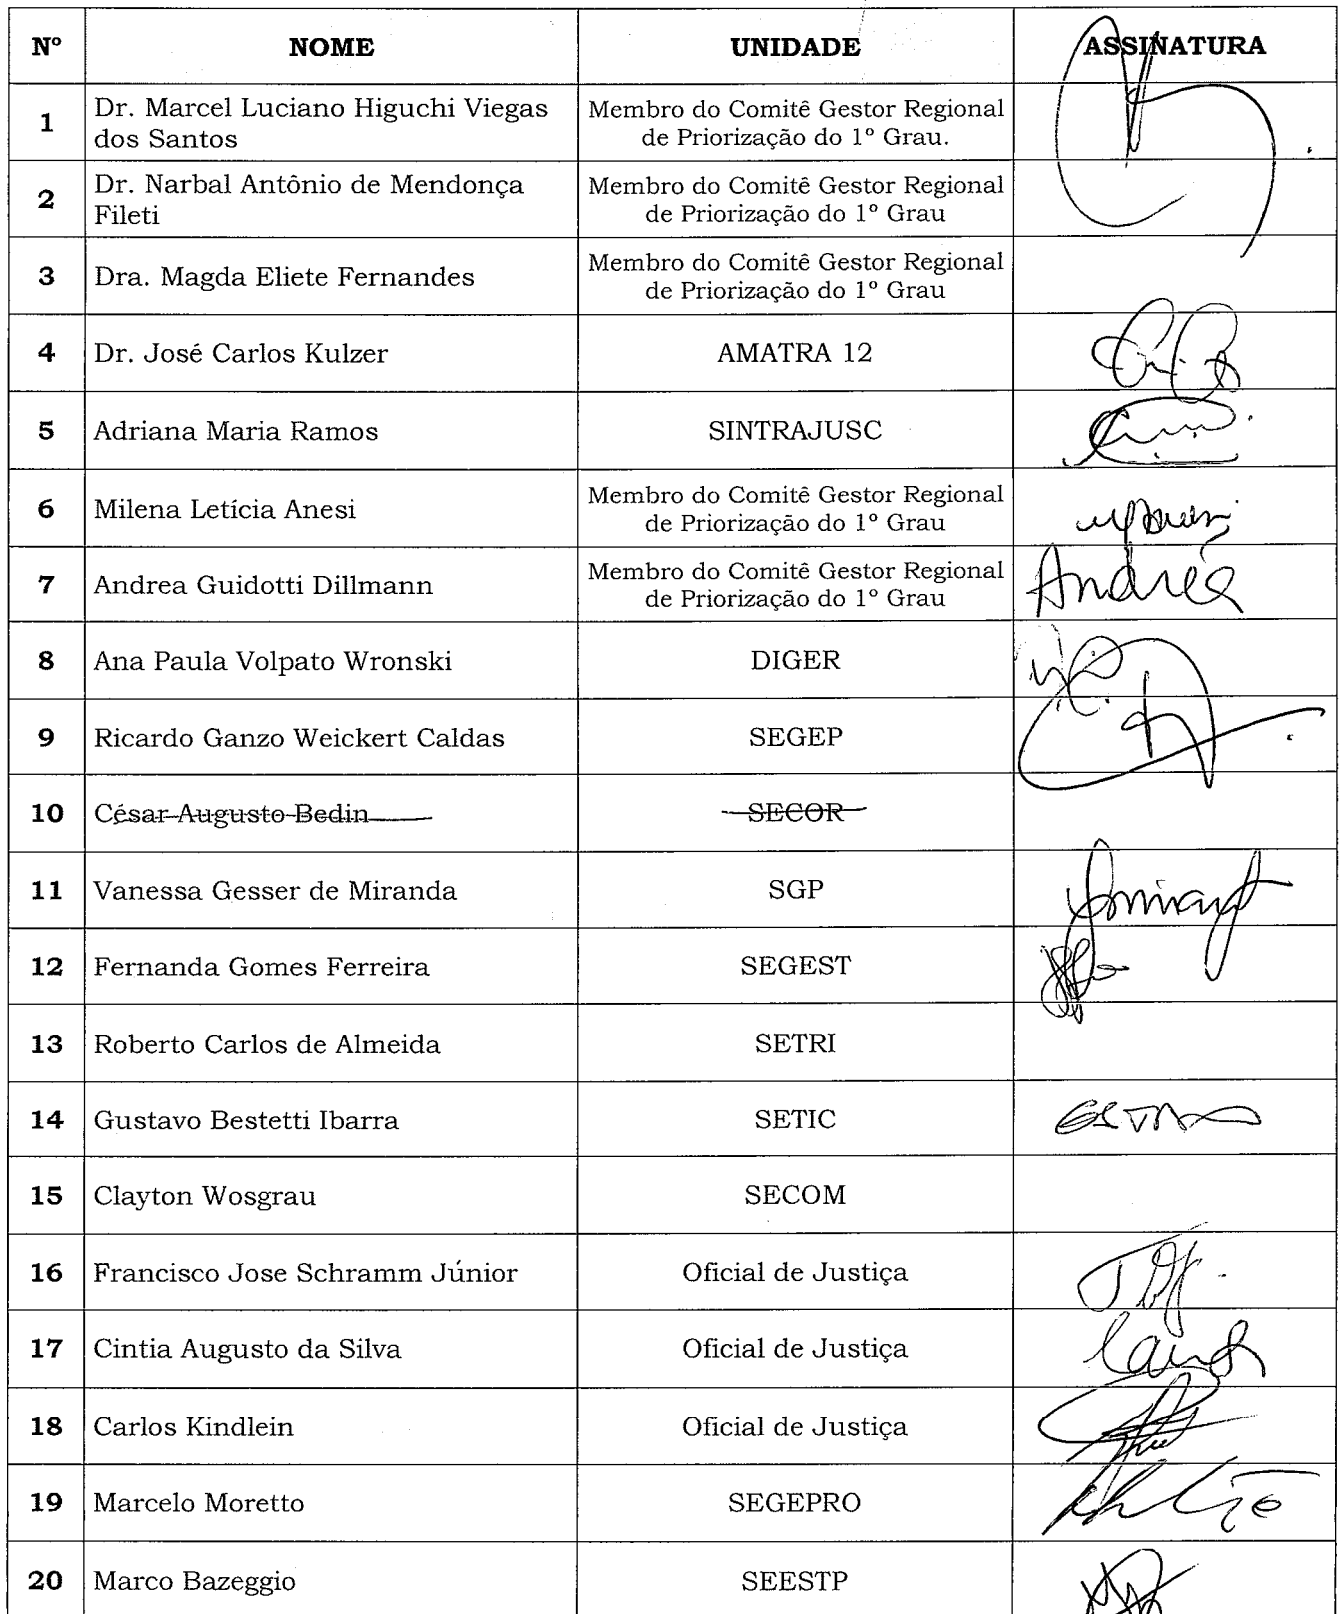 Nº NOME UNIDADE ASSINATURA
1 Dr. Marcel Luciano Higuchi Viegas dos Santos Membro do Comitê Gestor Regional de Priorização do 1º Grau.
2 Dr. Narbal Antônio de Mendonça Fileti Membro do Comitê Gestor Regional de Priorização do 1º Grau
3 Dra. Magda Eliete Fernandes Membro do Comitê Gestor Regional de Priorização do 1º Grau
4 Dr. José Carlos Kulzer AMATRA 12
5 Adriana Maria Ramos SINTRAJUSC
6 Milena Letícia Anesi Membro do Comitê Gestor Regional de Priorização do 1º Grau
7 Andrea Guidotti Dillmann Membro do Comitê Gestor Regional de Priorização do 1º Grau Andréa
8 Ana Paula Volpato Wronski DIGER
9 Ricardo Ganzo Weickert Caldas SEGEP
10 César Augusto Bedin SECOR
11 Vanessa Gesser de Miranda SGP
12 Fernanda Gomes Ferreira SEGEST
13 Roberto Carlos de Almeida SETRI
14 Gustavo Bestetti Ibarra SETIC
15 Clayton Wosgrau SECOM
16 Francisco Jose Schramm Júnior Oficial de Justiça
17 Cintia Augusto da Silva Oficial de Justiça
18 Carlos Kindlein Oficial de Justiça
19 Marcelo Moretto SEGEPRO
20 Marco Bazeggio SEESTP